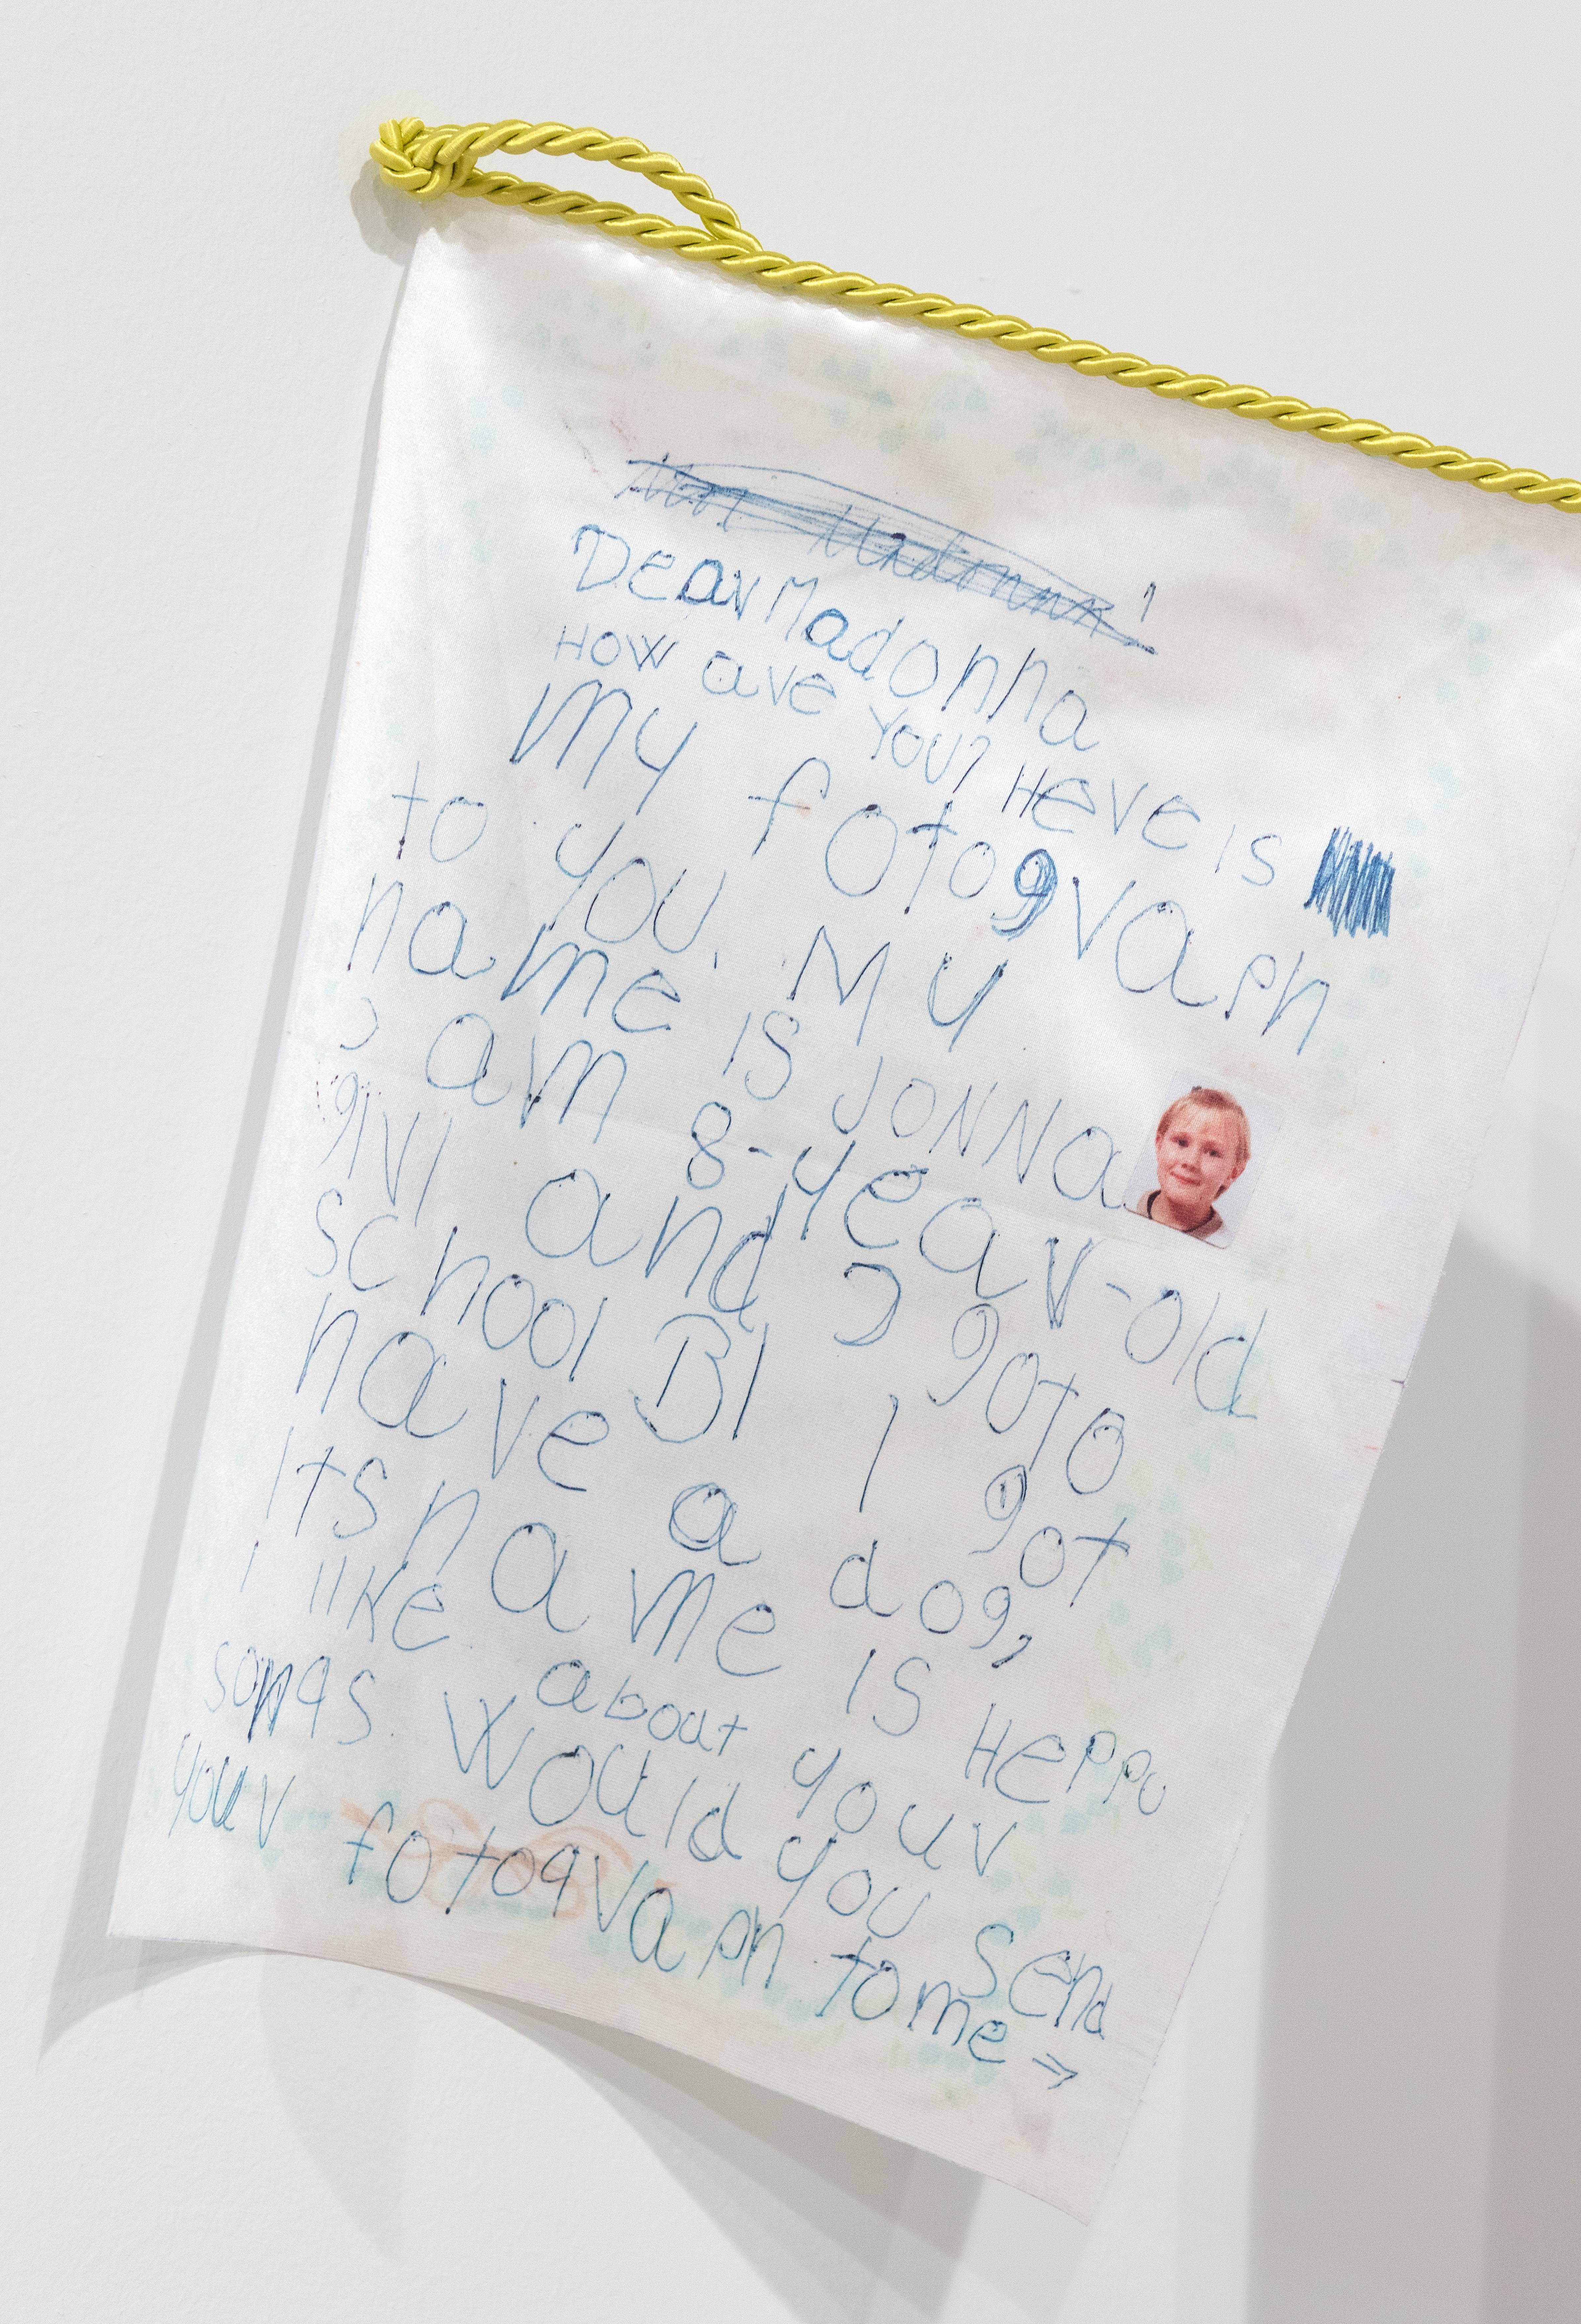 Dear Madonna
How are you? Here is
my fotograph
to you. My
name is Jonna
I am 8-year-old
girl and I goto
school BI I got
have a dog,
Its name is Heppu
I like about your
songs. Would you send
your fotograph to me ⇒